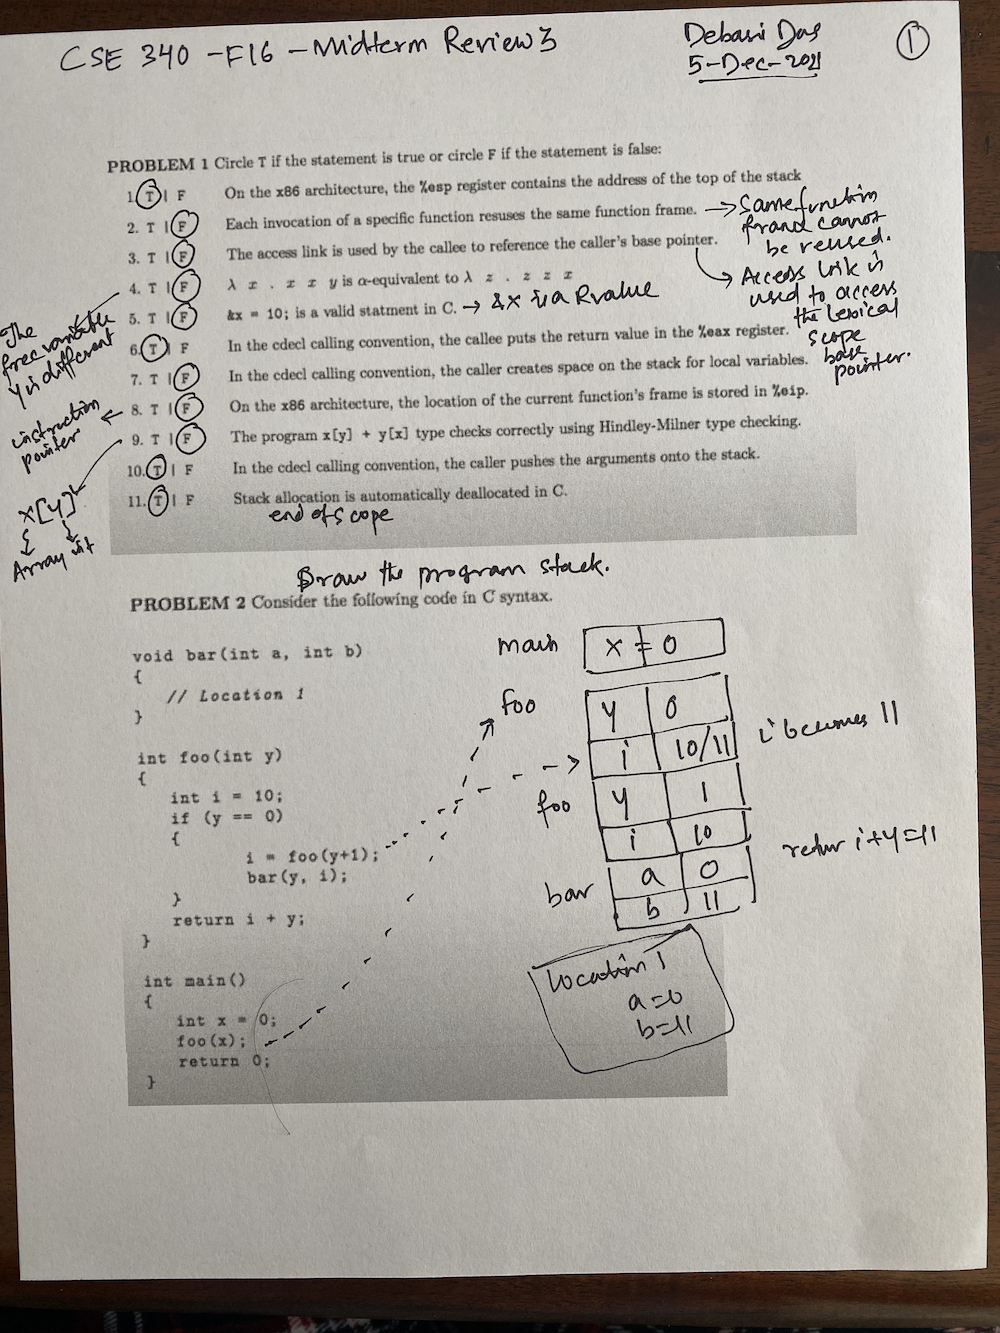 CSE 340 -F16 - Midterm Review 3
Debasri Das
5-Dec-2021
1
PROBLEM 1 Circle T if the statement is true or circle F if the statement is false:
1. T | F On the x86 architecture, the %esp register contains the address of the top of the stack
2. T | F Each invocation of a specific function resuses the same function frame. → Same function
cannot
be reused.
3. T | F The access link is used by the callee to reference the caller's base pointer.
Access link is
used to access
the lexical
scope
base
pointer.
4. T | F λ x . x x y is α-equivalent to λ z . z z x
The
free variable
y is different
5. T | F &x = 10; is a valid statment in C. → &x is a Rvalue
6. T | F In the cdecl calling convention, the callee puts the return value in the %eax register.
7. T | F In the cdecl calling convention, the caller creates space on the stack for local variables.
8. T | F On the x86 architecture, the location of the current function's frame is stored in %eip.
instruction
pointer
9. T | F The program x[y] + y[x] type checks correctly using Hindley-Milner type checking.
x[y]
Array int
10. T | F In the cdecl calling convention, the caller pushes the arguments onto the stack.
11. T | F Stack allocation is automatically deallocated in C.
end of scope
Draw the program stack.
PROBLEM 2 Consider the following code in C syntax.
void bar(int a, int b)
{
// Location 1
}
int foo(int y)
{
int i = 10;
if (y == 0)
{
i = foo(y+1);
bar(y, i);
}
return i + y;
}
int main()
{
int x = 0;
foo(x);
return 0;
}
main x = 0
foo y 0
i 10/11 i becomes 11
foo y 1
i 10 return i+y=11
bar a 0
b 11
Location 1
a=0
b=11